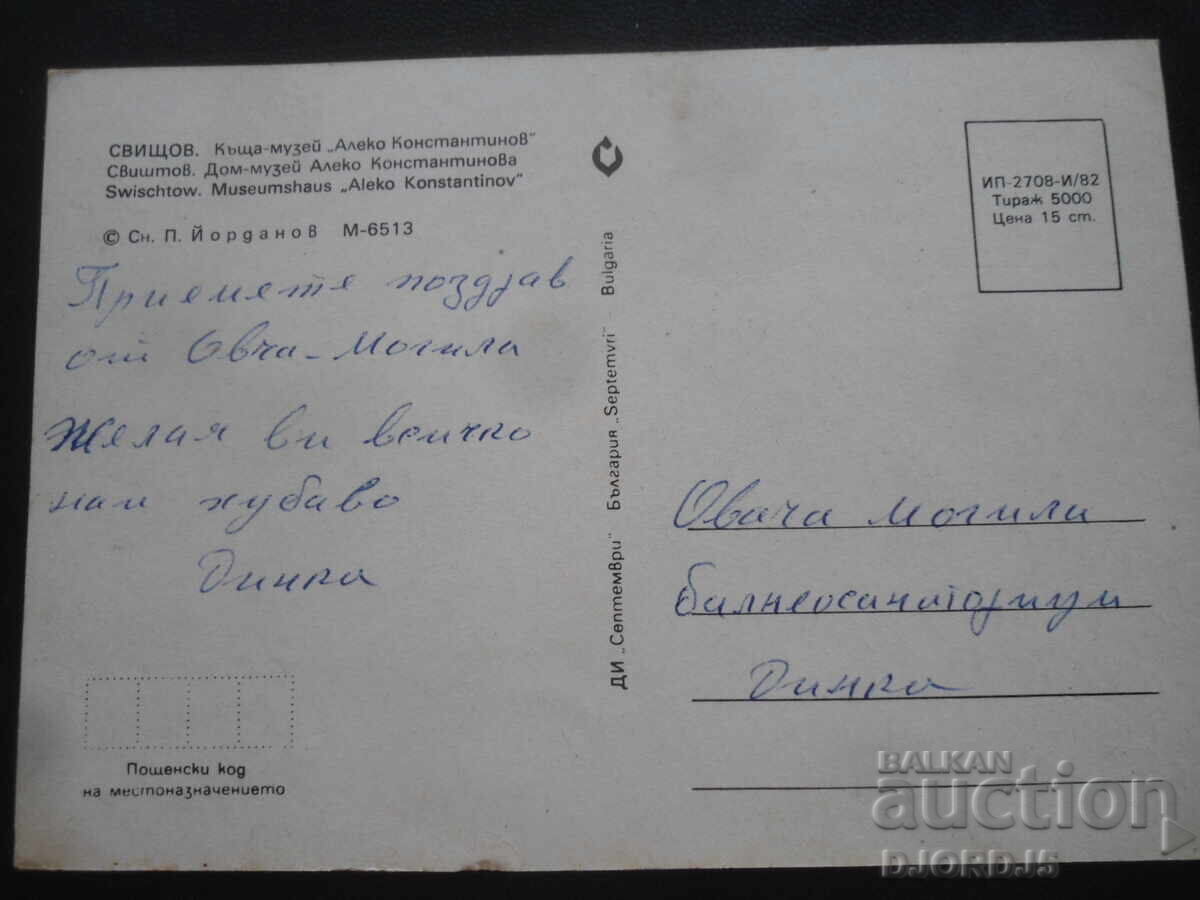 СВИЩОВ. Къща-музей „Алеко Константинов"
Свиштов. Дом-музей Алеко Константинова
Swischtow. Museumshaus „Aleko Konstantinov"
© Сн. П. Йорданов М-6513
Приемете поздрав
от Овча-Могила
Желая ви всичко
най хубаво
Динка
Пощенски код
на местоназначението
ДИ „Септември" България „Septemvri" - Bulgaria
ИП-2708-И/82
Тираж 5000
Цена 15 ст.
Овача могила
балнеосанаториум
Динка
BALKAN
auction
DJORDJ5